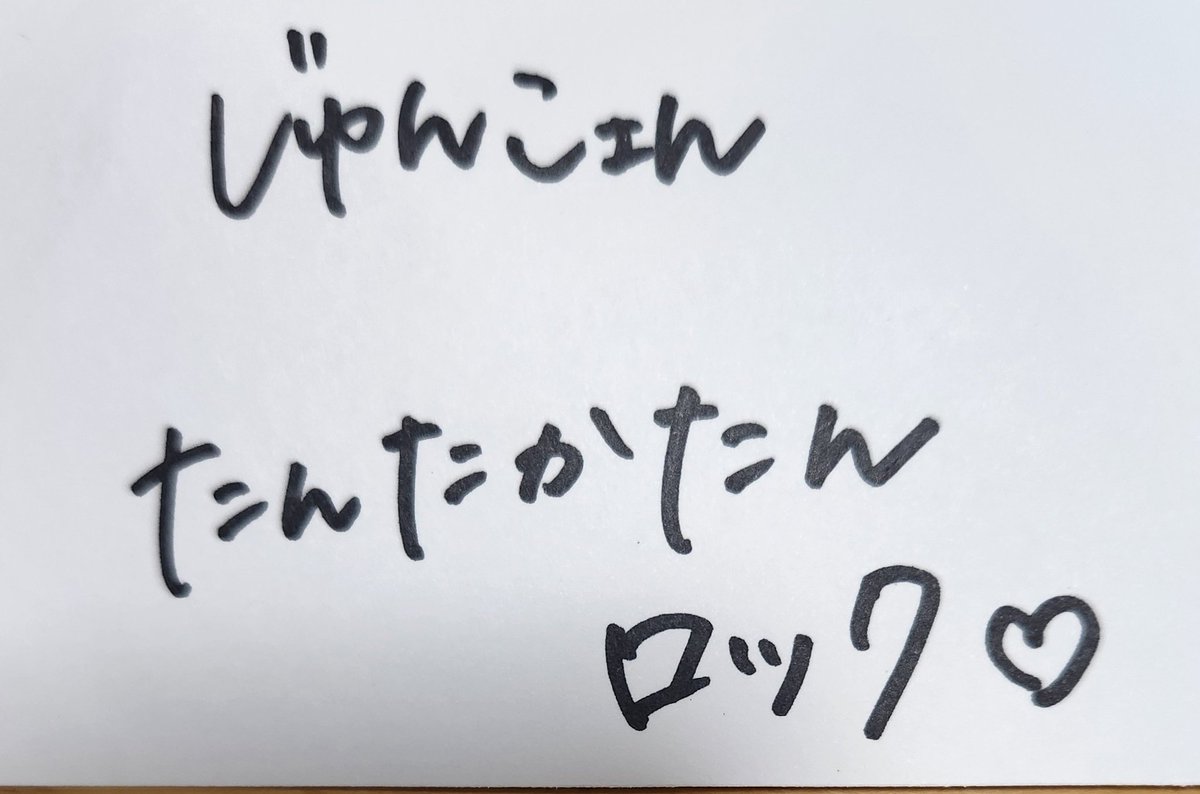 じゅんこェん
たんたかたん
ロック♡